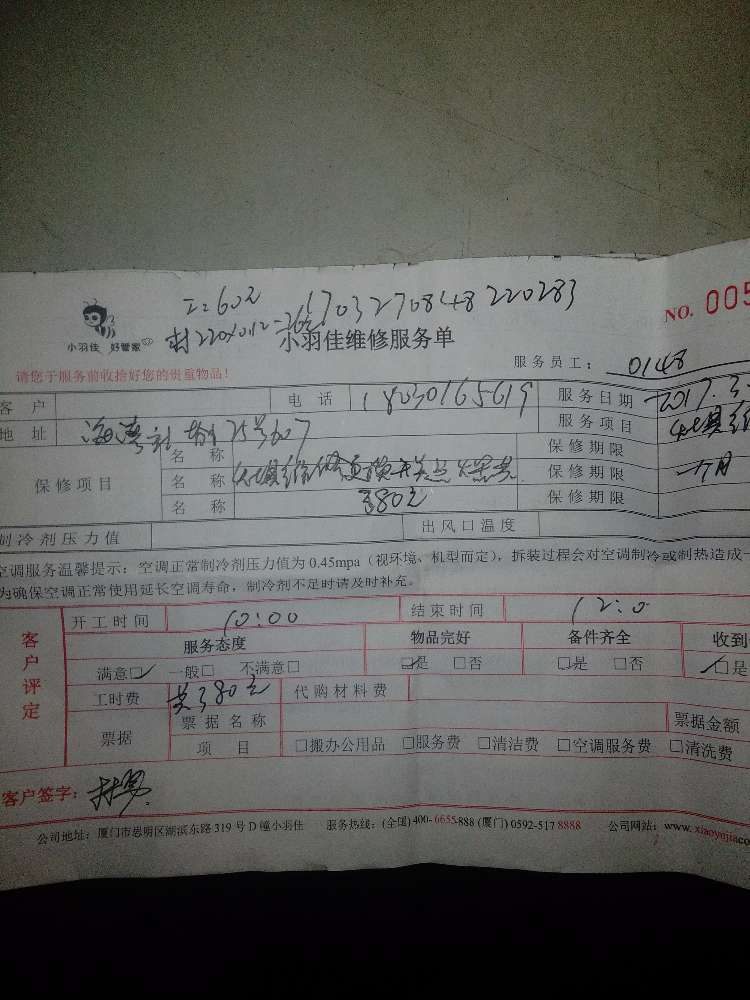 工=60元 170327084​8 220283
材220×0.12=
小羽佳 好管家
小羽佳维修服务单
NO. 005
请您于服务前收捡好您的贵重物品！
服务员工： 0148
客 户 电 话 18030165619 服务日期 2017.3
地 址 25号607 服务项目
保修项目 名 称 保修期限
名 称 保修期限 一个月
名 称 380元 保修期限
制冷剂压力值 出风口温度
空调服务温馨提示：空调正常制冷剂压力值为 0.45mpa（视环境、机型而定），拆装过程会对空调制冷或制热造成一
为确保空调正常使用延长空调寿命，制冷剂不足时请及时补充。
客户评定
开工时间 10:00 结束时间 12:0
服务态度 物品完好 备件齐全 收到
满意□ 一般□ 不满意□ □是 □否 □是 □否 □是
工时费 380元 代购材料费
票据 票 据 名 称 票据金额
项 目 □搬办公用品 □服务费 □清洁费 □空调服务费 □清洗费
客户签字：
公司地址：厦门市思明区湖滨东路 319 号 D 幢小羽佳 服务热线：(全国) 400-6655-888 (厦门) 0592-517 8888 公司网站：www.xiaoyujia